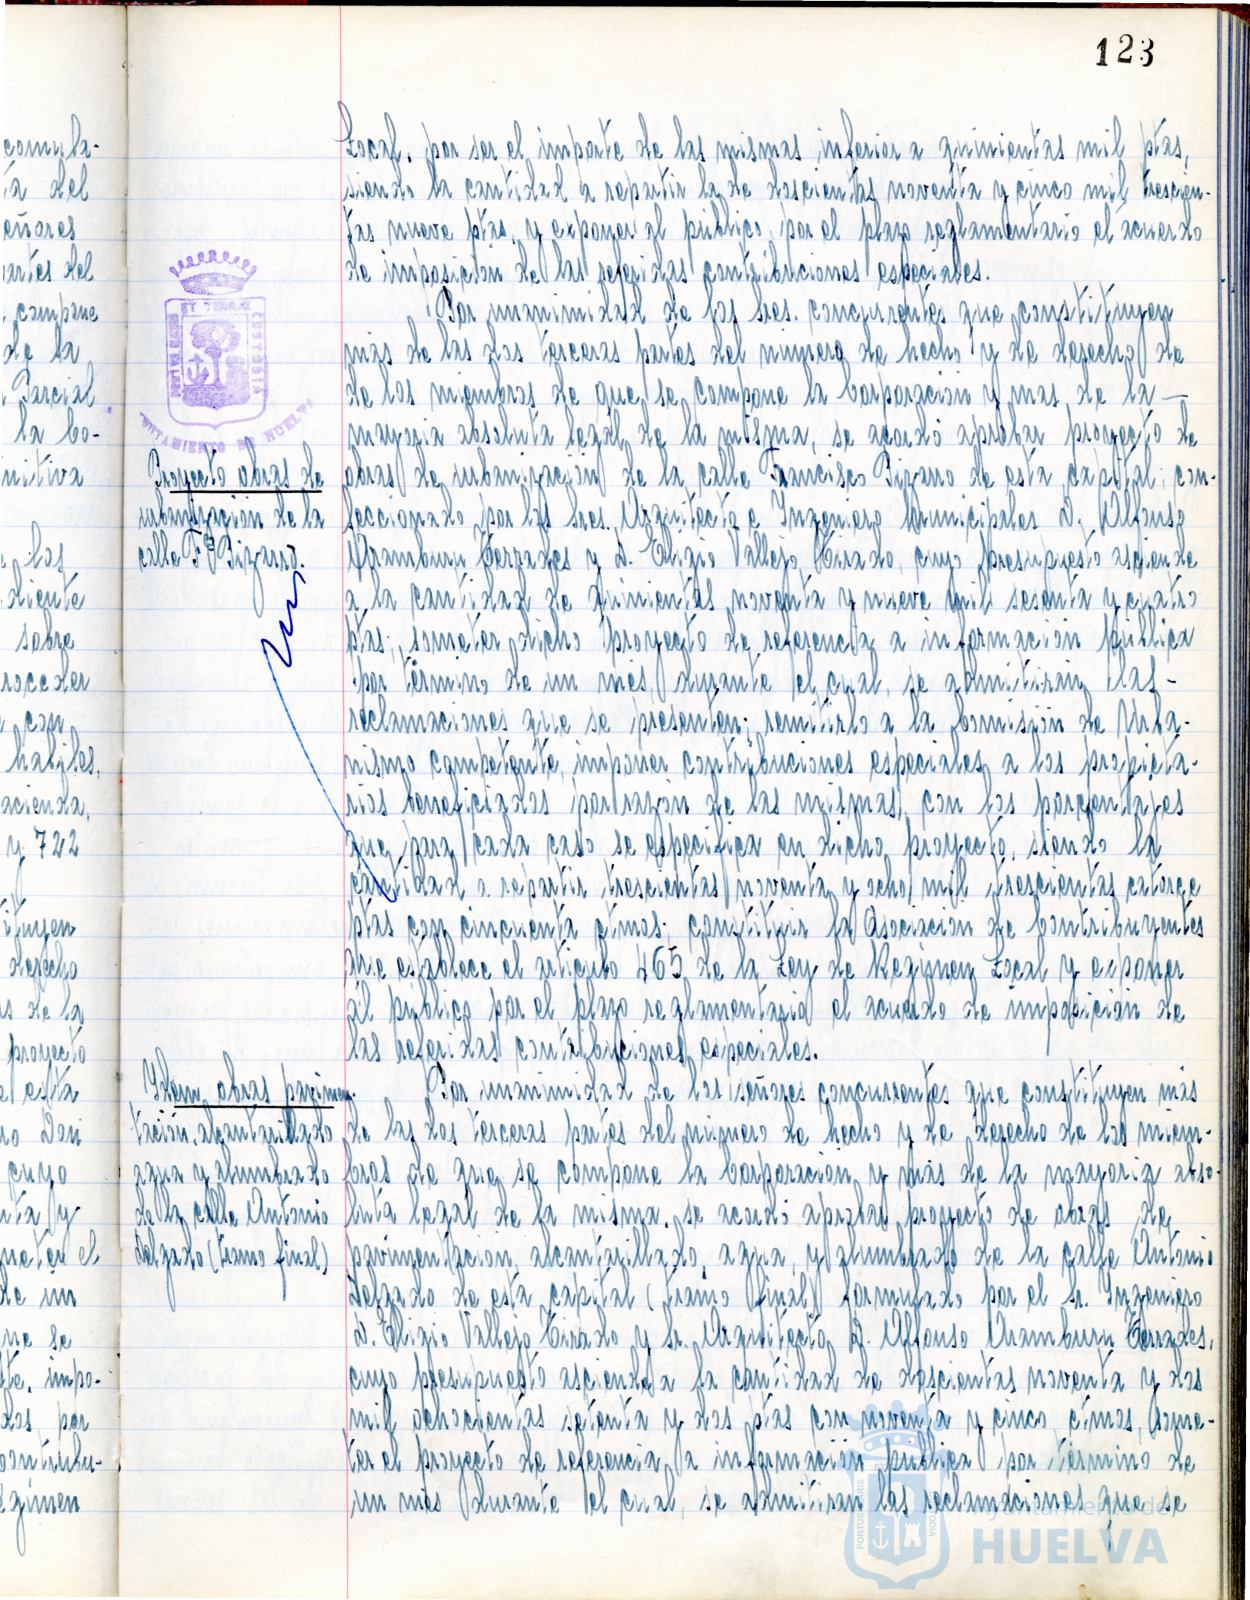 123
Local, por ser el importe de las mismas inferior a quinientas mil ptas,
siendo la cantidad a repartir la de doscientas noventa y cinco mil trescien-
tas nueve ptas, y exponer al público, por el plazo reglamentario el acuerdo
de imposición de las referidas contribuciones especiales.
Por unanimidad de los sres. concurrentes que constituyen
más de las dos terceras partes del número de hecho y de derecho de
de los miembros de que se compone la Corporación y mas de la —
mayoria absoluta legal de la misma, se acordó aprobar proyecto de
obras de urbanización de la calle Francisco Pizarro de esta capital, con-
feccionado por los sres. Arquitecto e Ingeniero Municipales D. Alfonso
Aramburu Terrades y D. Eligio Vallejo Tirado, cuyo presupuesto asciende
a la cantidad de quinientas noventa y nueve mil sesenta y cuatro
ptas; someter dicho proyecto de referencia a información pública
por término de un mes, durante el cual, se admitirán las -
reclamaciones que se presenten; remitirlo a la Comisión de Urba-
nismo competente, imponer contribuciones especiales a los propieta-
rios beneficiados por razón de las mismas, con los porcentajes
que para cada caso se especifica en dicho proyecto, siendo la
cantidad a repartir trescientas noventa y ocho mil trescientas catorce
ptas con cincuenta ctmos; constituir la Asociación de Contribuyentes
que establece el artículo 465 de la Ley de Regimen Local y exponer
al público por el plazo reglamentario el acuerdo de imposición de
las referidas contribuciones especiales.
Por unanimidad de los señores concurrentes que constituyen más
de las dos terceras partes del número de hecho y de derecho de los miem-
bros de que se compone la Corporación y más de la mayoria abso-
luta legal de la misma, se acordó aprobar proyecto de obras de
pavimentación, alcantarillado, agua, y alumbrado de la calle Antonio
Delgado de esta capital (tramo final) formulado por el Sr. Ingeniero
D. Eligio Vallejo Tirado y Sr. Arquitecto D. Alfonso Aramburu Terrades,
cuyo presupuesto asciende a la cantidad de doscientas noventa y dos
mil ochocientas setenta y dos ptas con noventa y cinco ctmos, some-
ter el proyecto de referencia a información pública por término de
un més durante el cual, se admitiran las reclamaciones que se
Proyecto obras de
urbanización de la
calle Fº Pizarro.
Idem, obras pavimen-
tación, alcantarillado
agua y alumbrado
de la calle Antonio
Delgado (tramo final)
ta del
eñores
artes del
compone
de la
Parcial
la Co-
initiva
los
diente
sobre
roceder
con
habiles,
acienda,
y 722
tituyen
derecho
s de la
proyecto
esta
ro Don
cuyo
nta y
meter el
de un
ue se
te, impo-
dos por
contribu-
egimen
AYUNTAMIENTO DE HUELVA
Ayuntamiento de
HUELVA